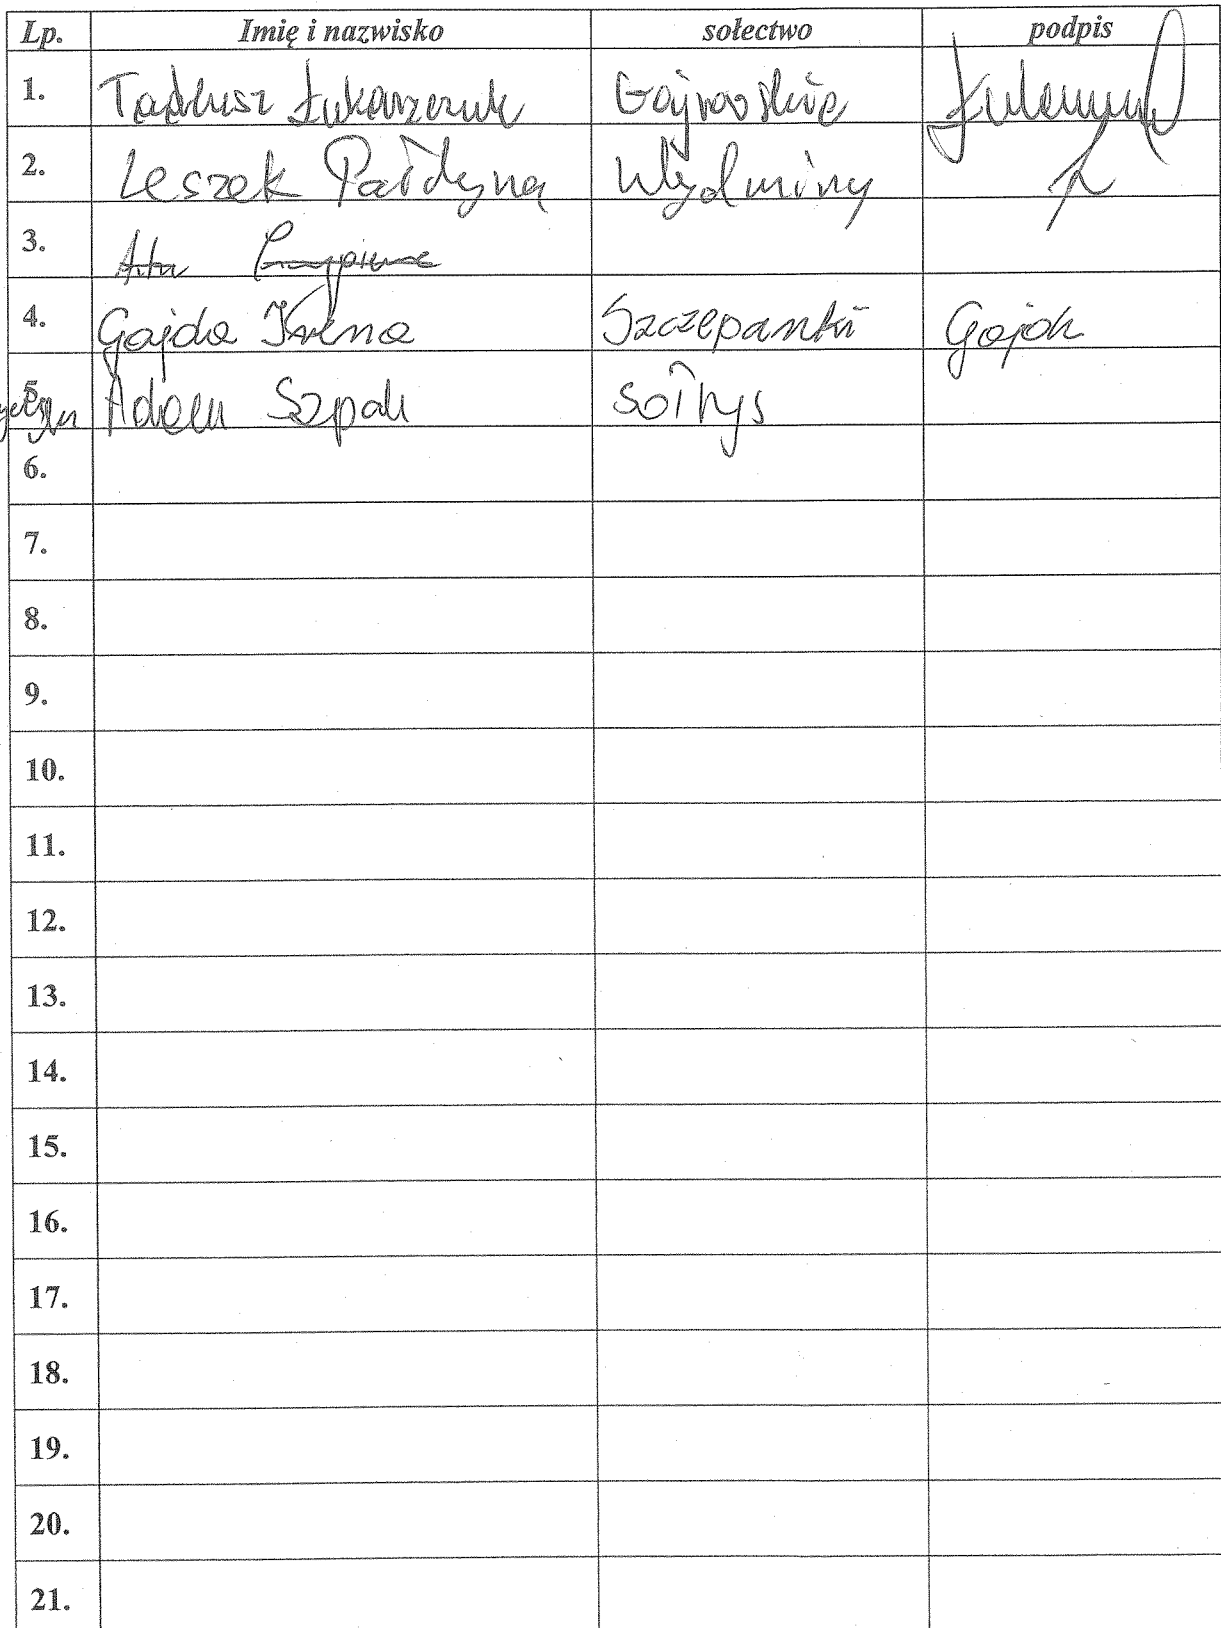 Lp. Imię i nazwisko sołectwo podpis
1. Tadeusz Łukaszczuk
2. Leszek Pałdyna Wydminy
3.
4. Gajda Irena Szczepanki Gajda
5. Adam Szpak sołtys
6.
7.
8.
9.
10.
11.
12.
13.
14.
15.
16.
17.
18.
19.
20.
21.